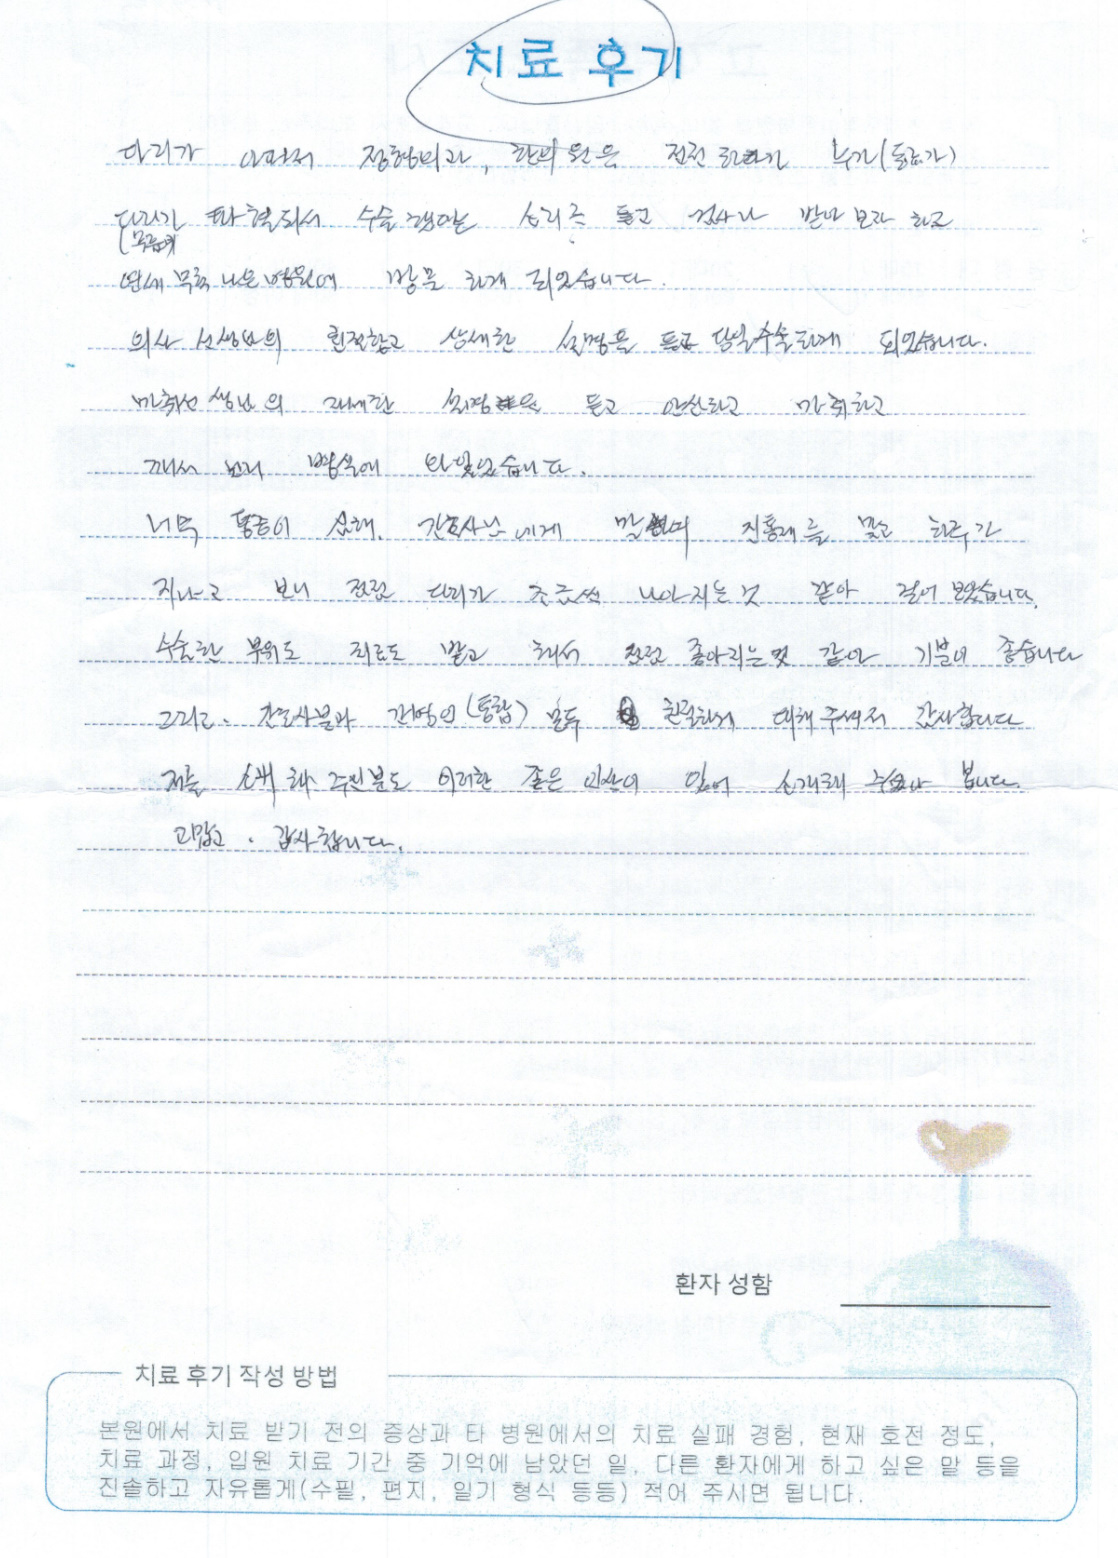 치료 후기
다리가 아파서 정형외과, 한의원은 전전 하다가 누가(동료가)
다리가 수술 했다는 소리를 듣고 검사나 받아 보라 하고
(무릎이
연세무척나은병원에 방문 하게 되었습니다.
의사 선생님의 친절하고 상세한 설명을 듣고 당일수술하게 되었습니다.
마취선생님의 자세한 설명을 듣고 안심하고 마취하고
깨서 보니 병실에 와 있었습니다.
너무 통증이 심해. 간호사님에게 말하여 진통제를 맞고 하루가
지나고 보니 점점 다리가 조금씩 나아지는것 같아 걸어 보았습니다.
수술한 부위도 치료도 받고 해서 점점 좋아지는것 같아 기분이 좋습니다
그리고. 간호사분과 간병인(통합) 모두 친절하게 대해 주셔서 감사합니다
저를 소개 해 주신분도 이러한 좋은 인상이 있어 소개해 주었나 봅니다.
고맙고. 감사합니다.
환자 성함
치료 후기 작성 방법
본원에서 치료 받기 전의 증상과 타 병원에서의 치료 실패 경험, 현재 호전 정도,
치료 과정, 입원 치료 기간 중 기억에 남았던 일, 다른 환자에게 하고 싶은 말 등을
진솔하고 자유롭게(수필, 편지, 일기 형식 등등) 적어 주시면 됩니다.